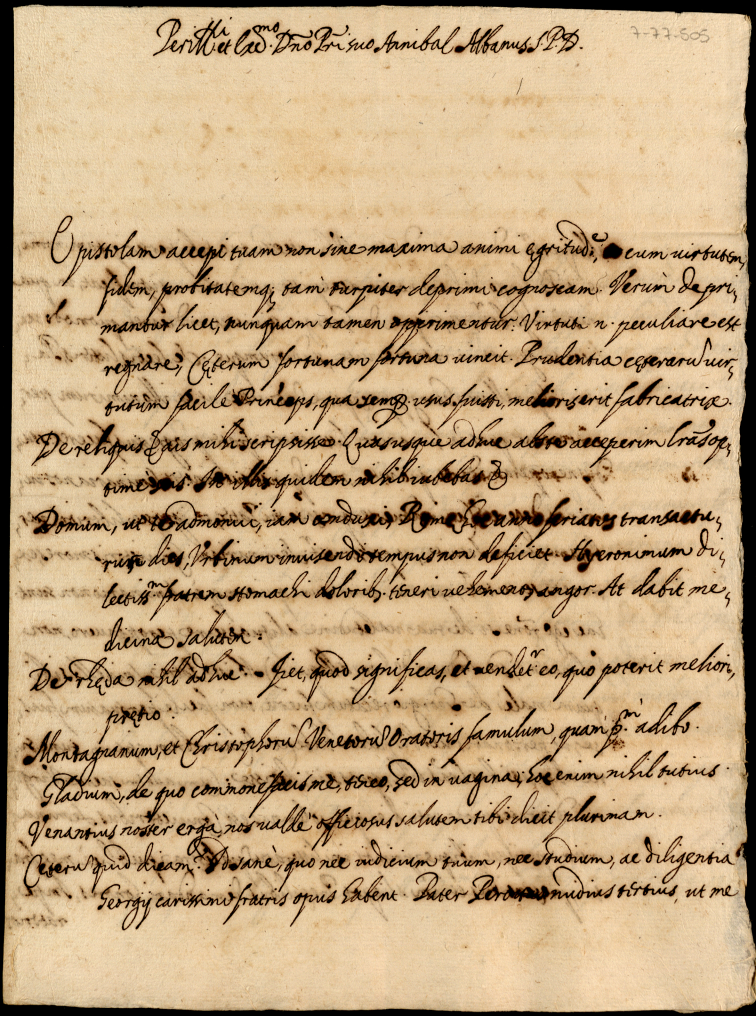 7-77-505
Perill.tri et Col.mo Dño Pñi suo Annibal Albanus S.P.D.
Epistolam accepi tuam non sine maxima animi egritud:e, cum virtutem,
fidem, probitatemq; tam turpiter deprimi cognoscam. Verùm depri-
mantur licet, nunquam tamen opprimentur. Virtuti n. peculiare est
regnare, Cęterum fortunam fortuna vincit. Prudentia cęterarũ vir-
tutum facile Princeps, qua semp. usus fuisti, melioris erit fabricatrix.
De reliquis satis mihi scripsisse. Quas usque adhuc abs te acceperim lr̃as op-
time In illis quidem nihil iubebas
Domum, ut te admonui, iam conduxi, Romę hoc anno feriatis transactu-
rum dies, Urbinum invisendi tempus non deficiet. Hyeronimum di-
lectiss.m fratrem stomachi dolorib. teneri vehementer angor. At dabit me-
dicina salutem.
De rhęda nihil adhuc. Fiet, quod significas, et vendet.r eo, quo poterit meliori,
prętio.
Montagnanum, et Christophorũ Venetorũ Oratoris famulum, quam p.m adibo.
Gladium, de quo commonefacis me, teneo, sed in vagina, hoc enim nihil tutius.
Venantius noster ergà nos valdè officiosus salutem tibi dicit plurimam.
Cęterũ quid dicam? Id sanè, quo nec iudicium tuum, nec studium, ac diligentia
Georgij carissimi fratris opus habent. Pater nudius tertius, ut me